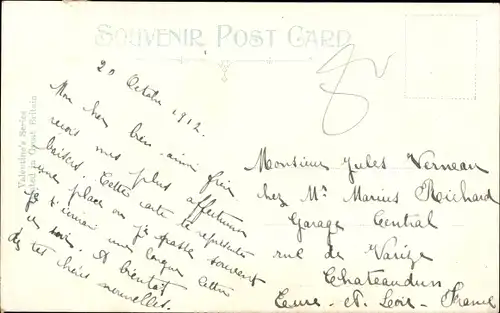 SOUVENIR POST CARD
Valentine's Series
Printed in Great Britain
20 Octobre 1912.
Mon cher bien aimé frère
reçois mes plus affectueux
baisers. Cette carte te représente
une place où je passe souvent
je t'écrirai une longue lettre
ce soir. A bientôt
de tes chères nouvelles.
Monsieur Jules Verneau
chez Mr Marius Richard
Garage Central
rue de Varize
Chateaudun
Eure-et-Loir - France